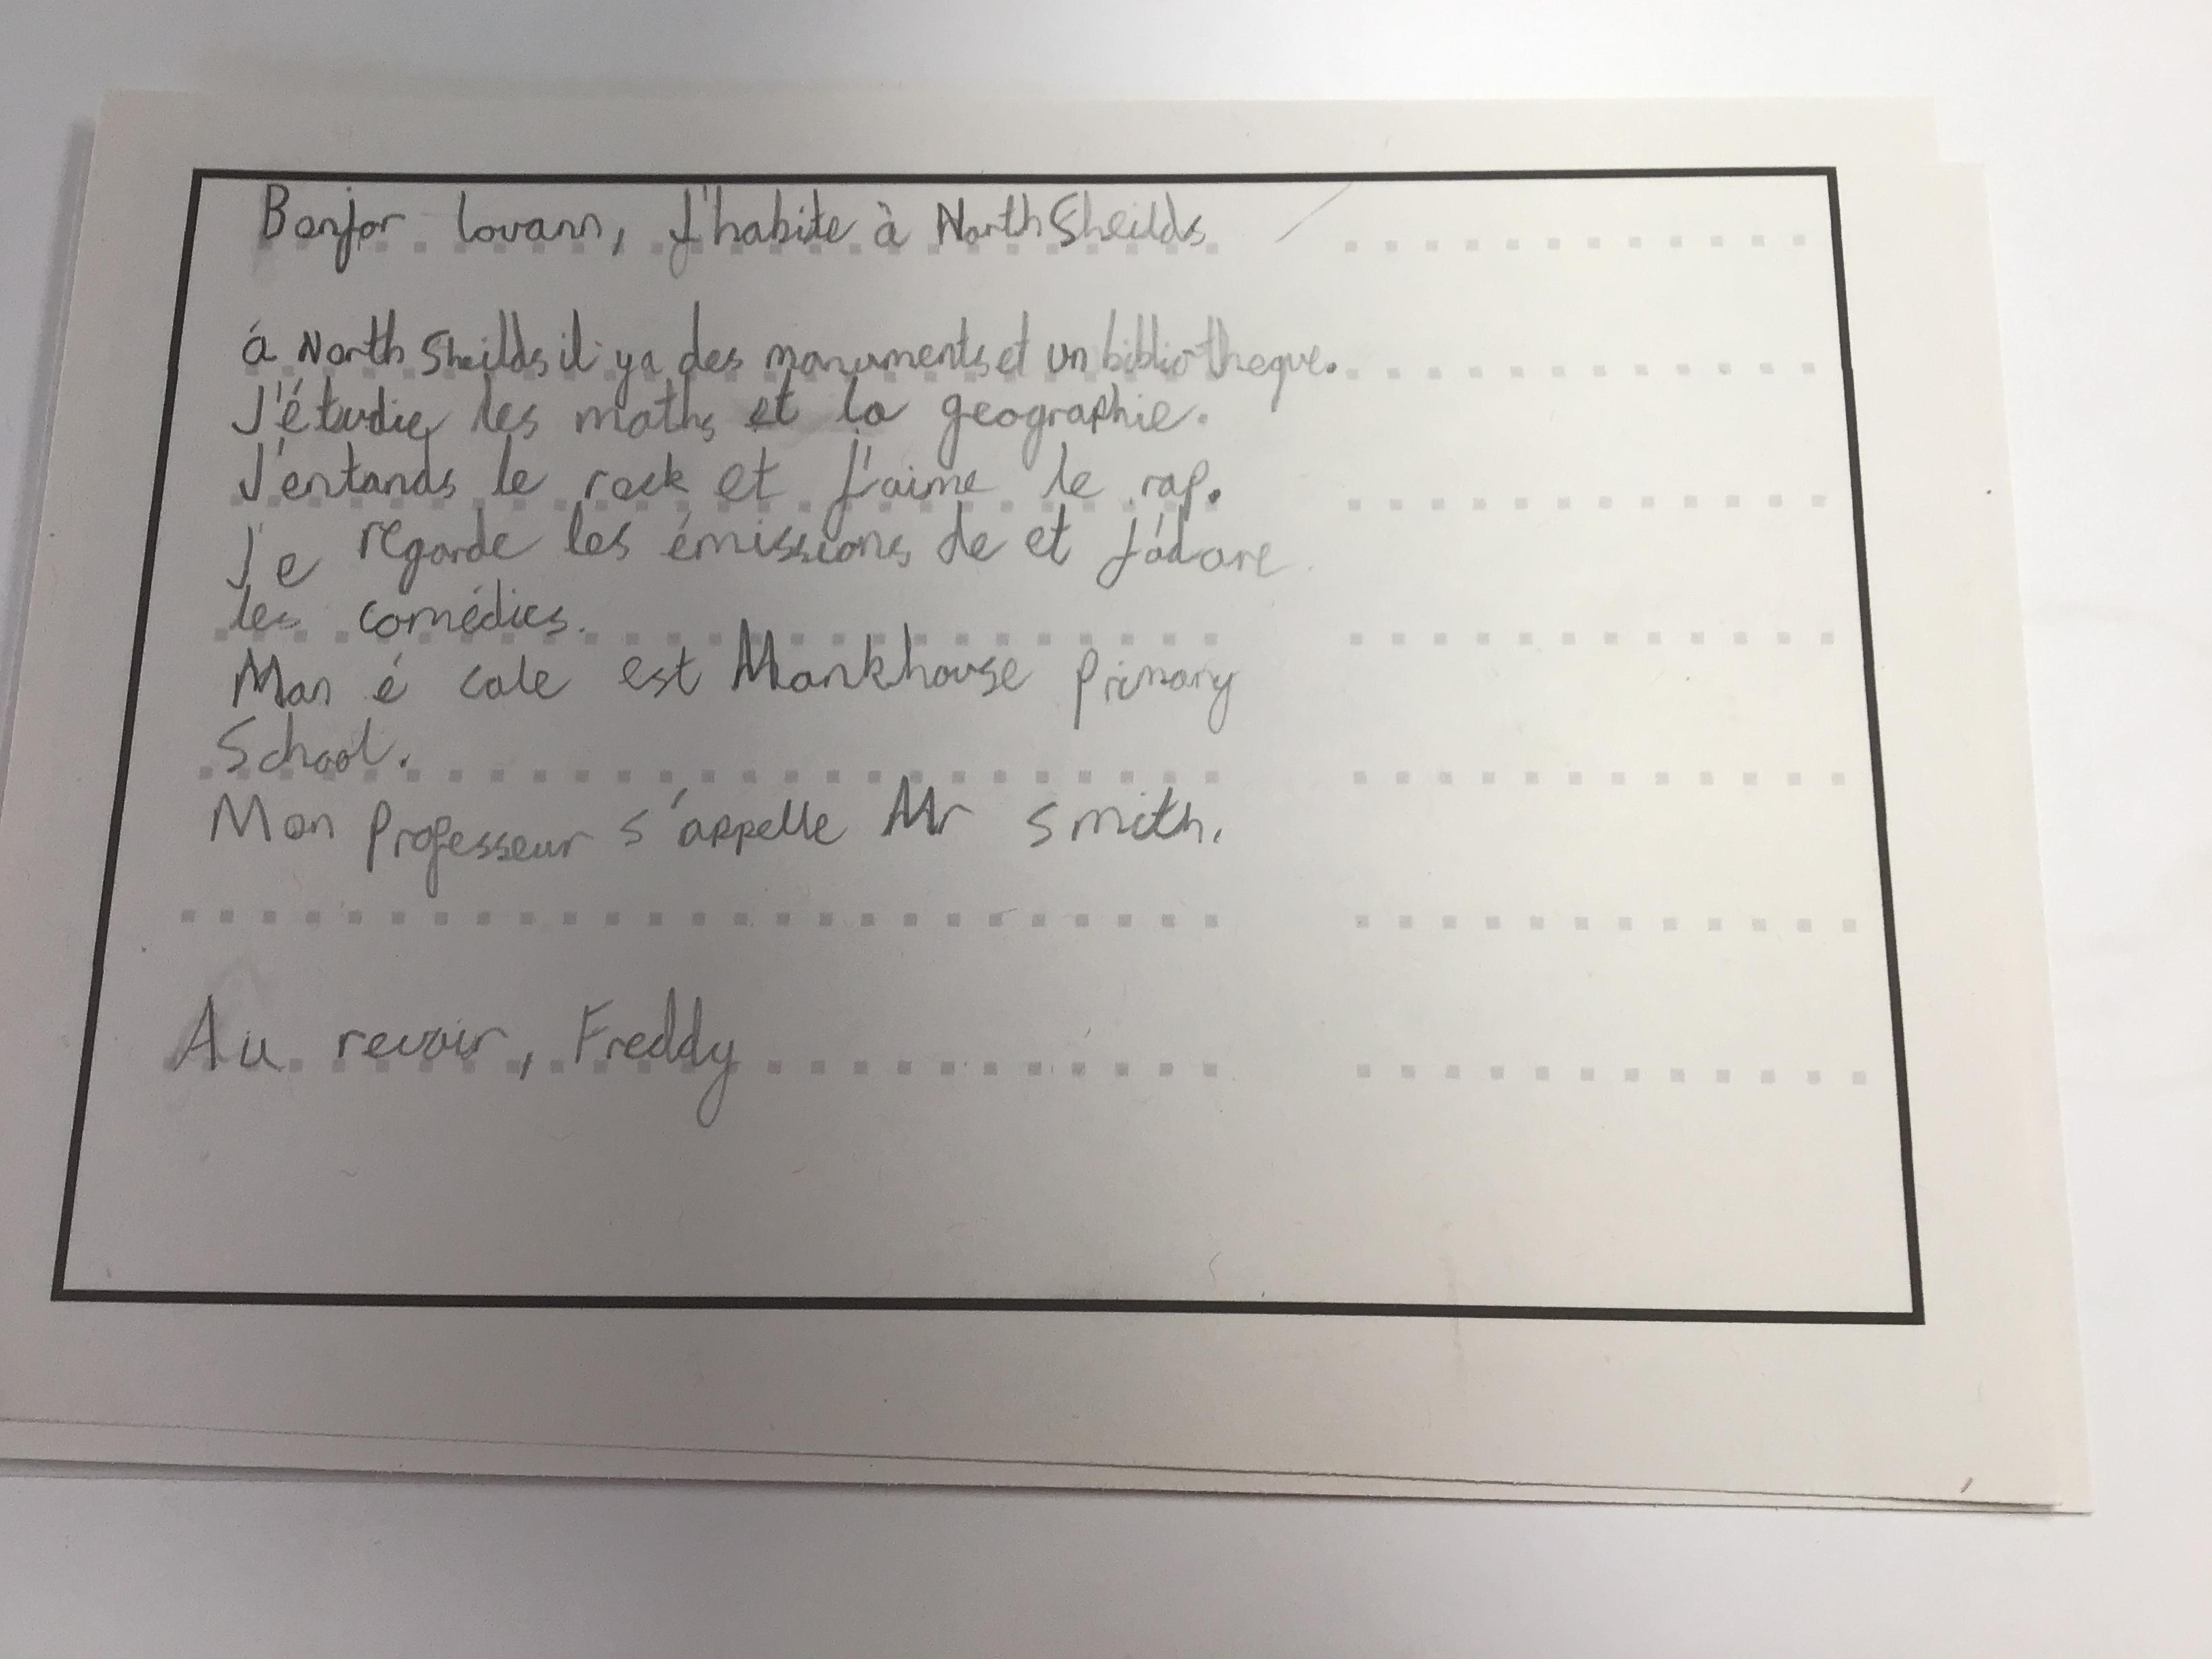 Bonjor lovann, J'habite à North Sheilds
á North Sheilds il ya des monuments et un bibliotheque.
J'étudie les maths et la geographie.
J'entands le rock et J'aime le rap.
Je regarde les émissions de et J'adore
les comédies.
Mon é cole est Monkhouse Primary
School.
Mon professeur s'appelle Mr smith.
Au revoir, Freddy